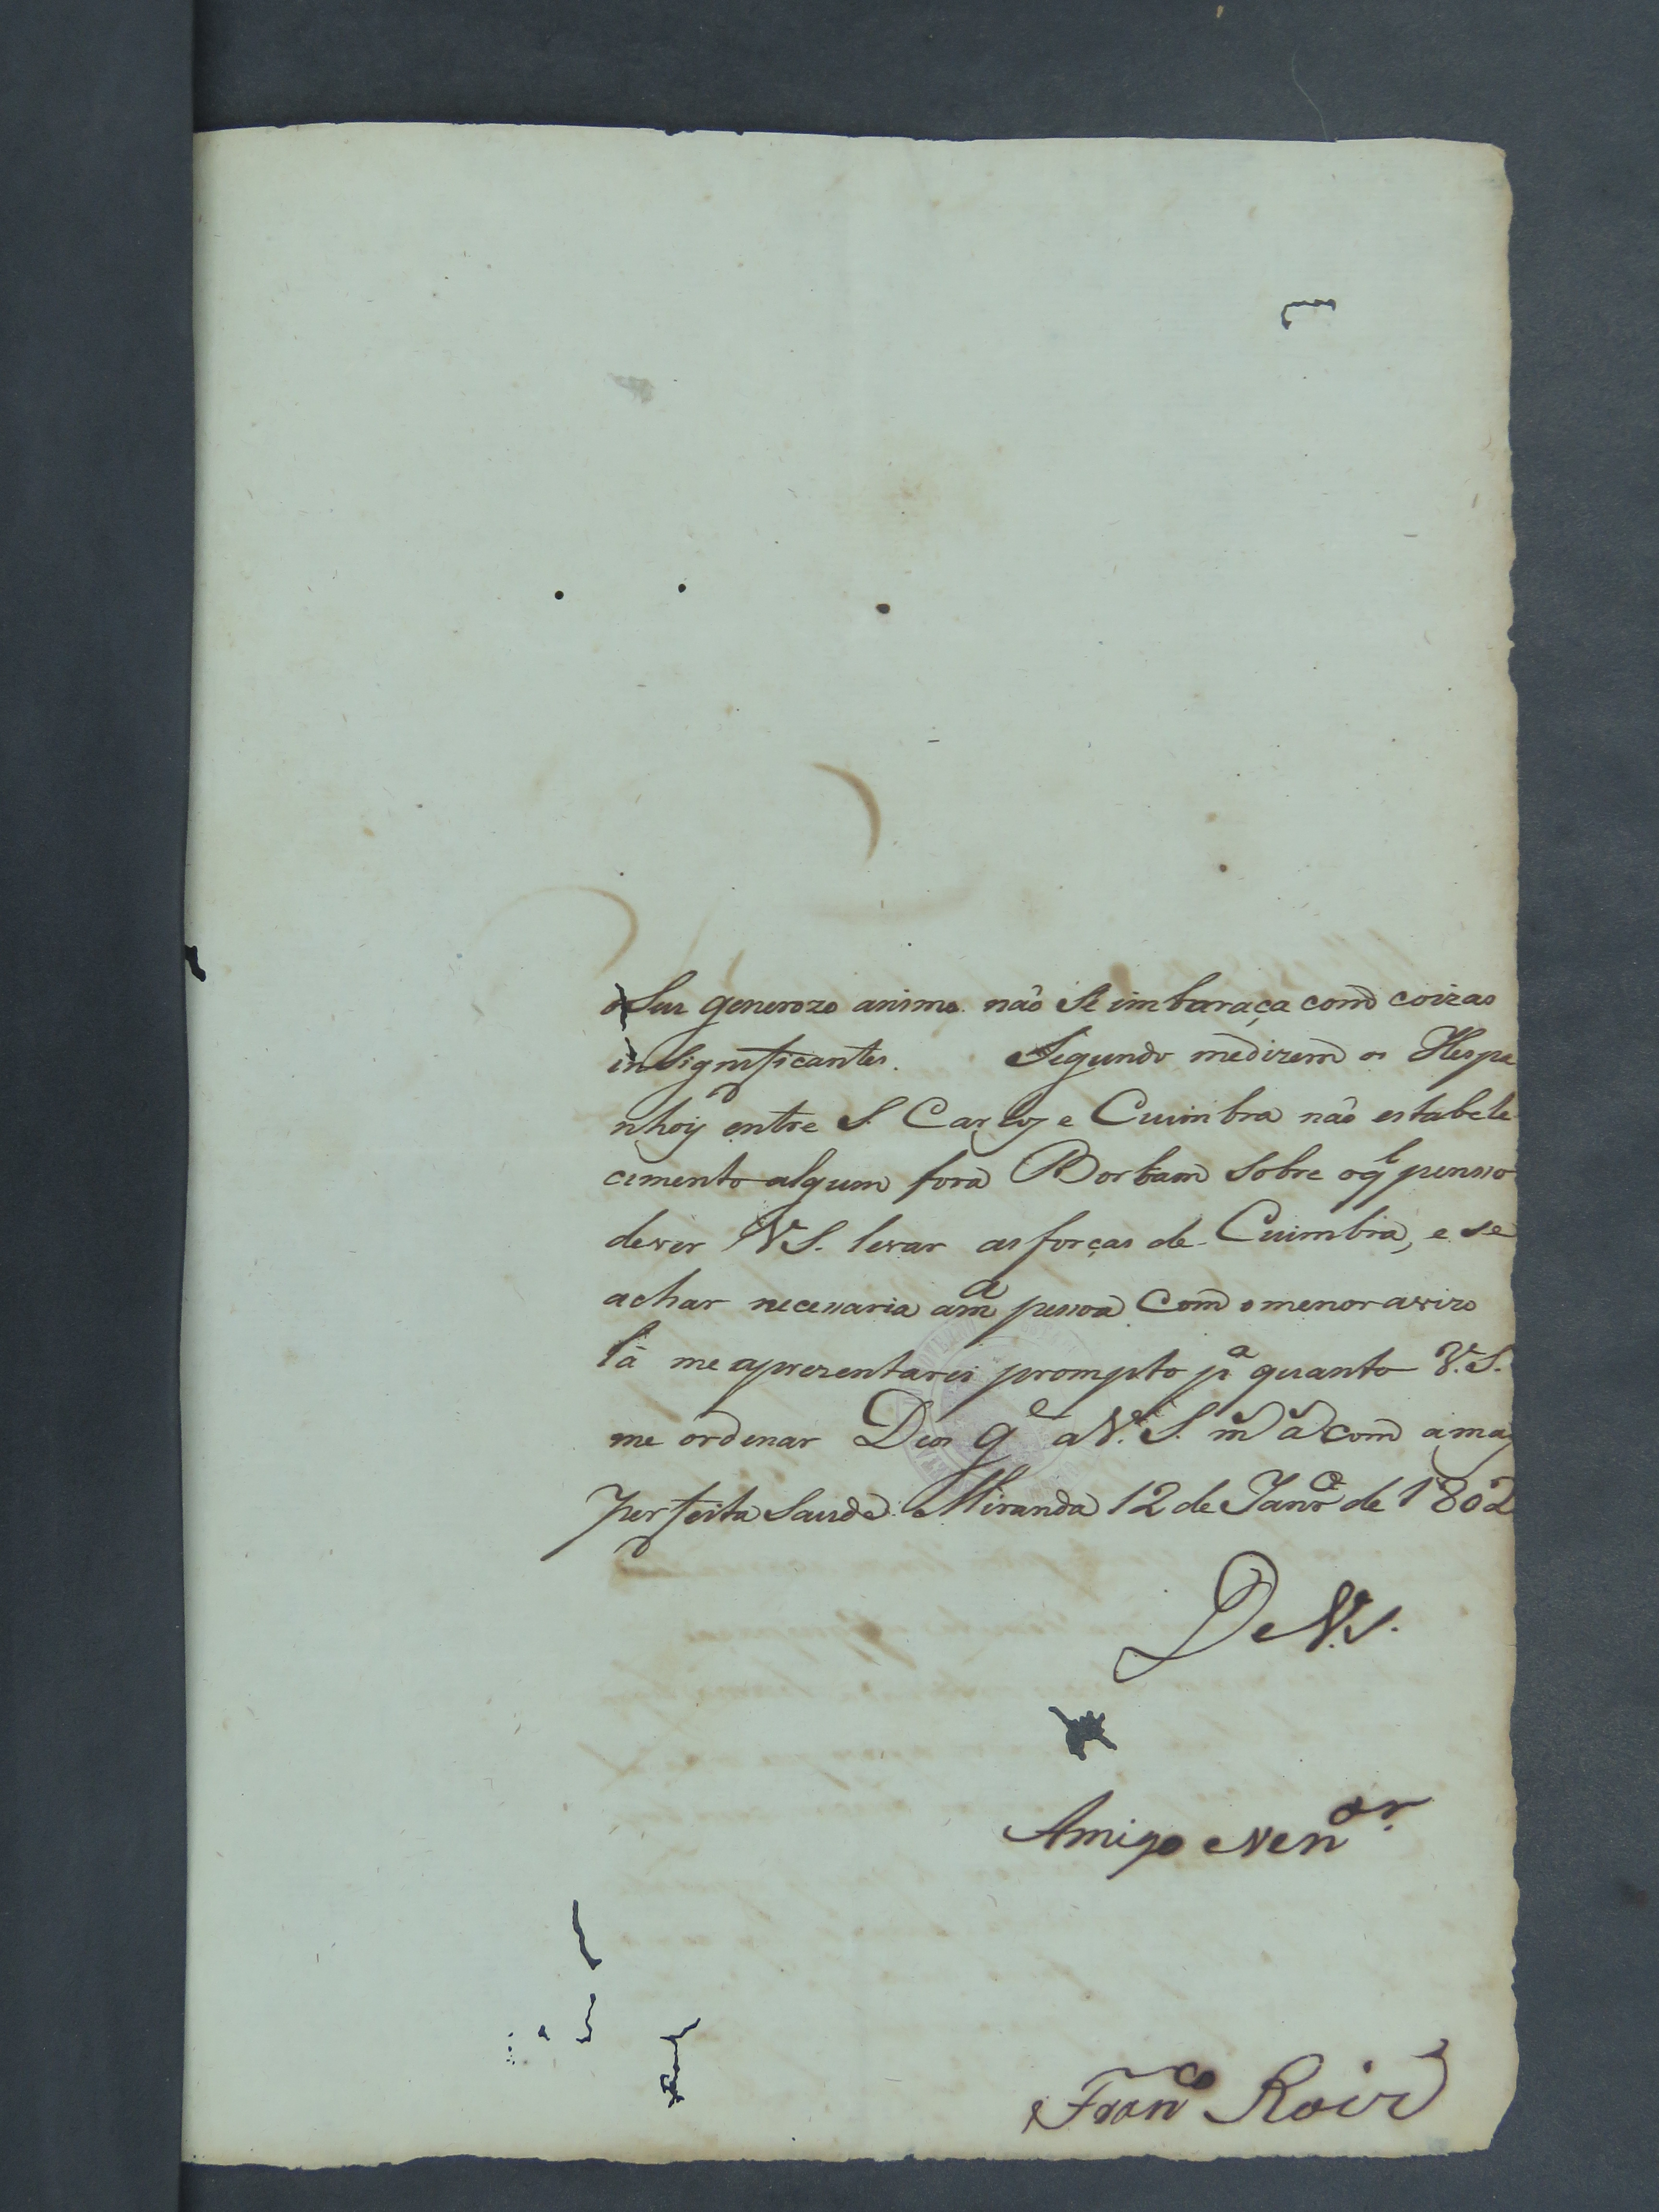 o Seu generozo animo não Se imbaraça com coizas
insignificantes. Segundo medizem os Hespa
nhoiz entre S. Carlos e Cuimbra não estabele
cimento algum fora Borbam Sobre oq̃l pensso
dever V.S. levar as forças de Cuimbra, e se
achar necessaria am.ª pessoa Com o menor avizo
lá me aprezentarei prompto p.ª quanto V.S.
me ordenar Deos g.e a V.S. m.s a.s com amais
perfeita Saude. Miranda 12 de Janr.o de 1802
De V.S.
Amigo e Ven.or
Fran.co Roiz